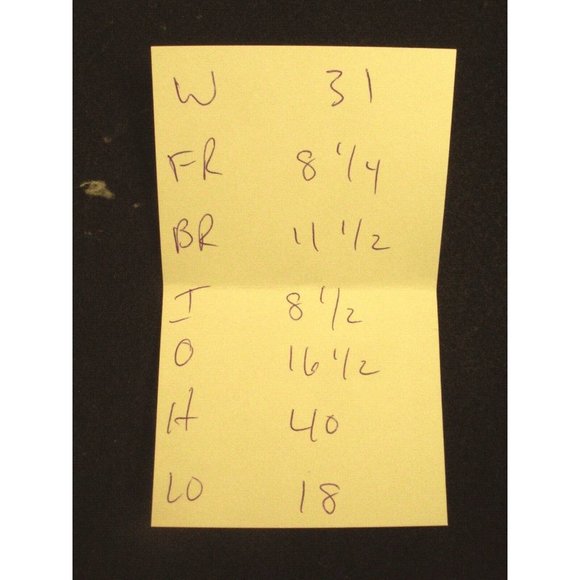 W 31
FR 8 1/4
BR 11 1/2
I 8 1/2
O 16 1/2
H 40
LO 18